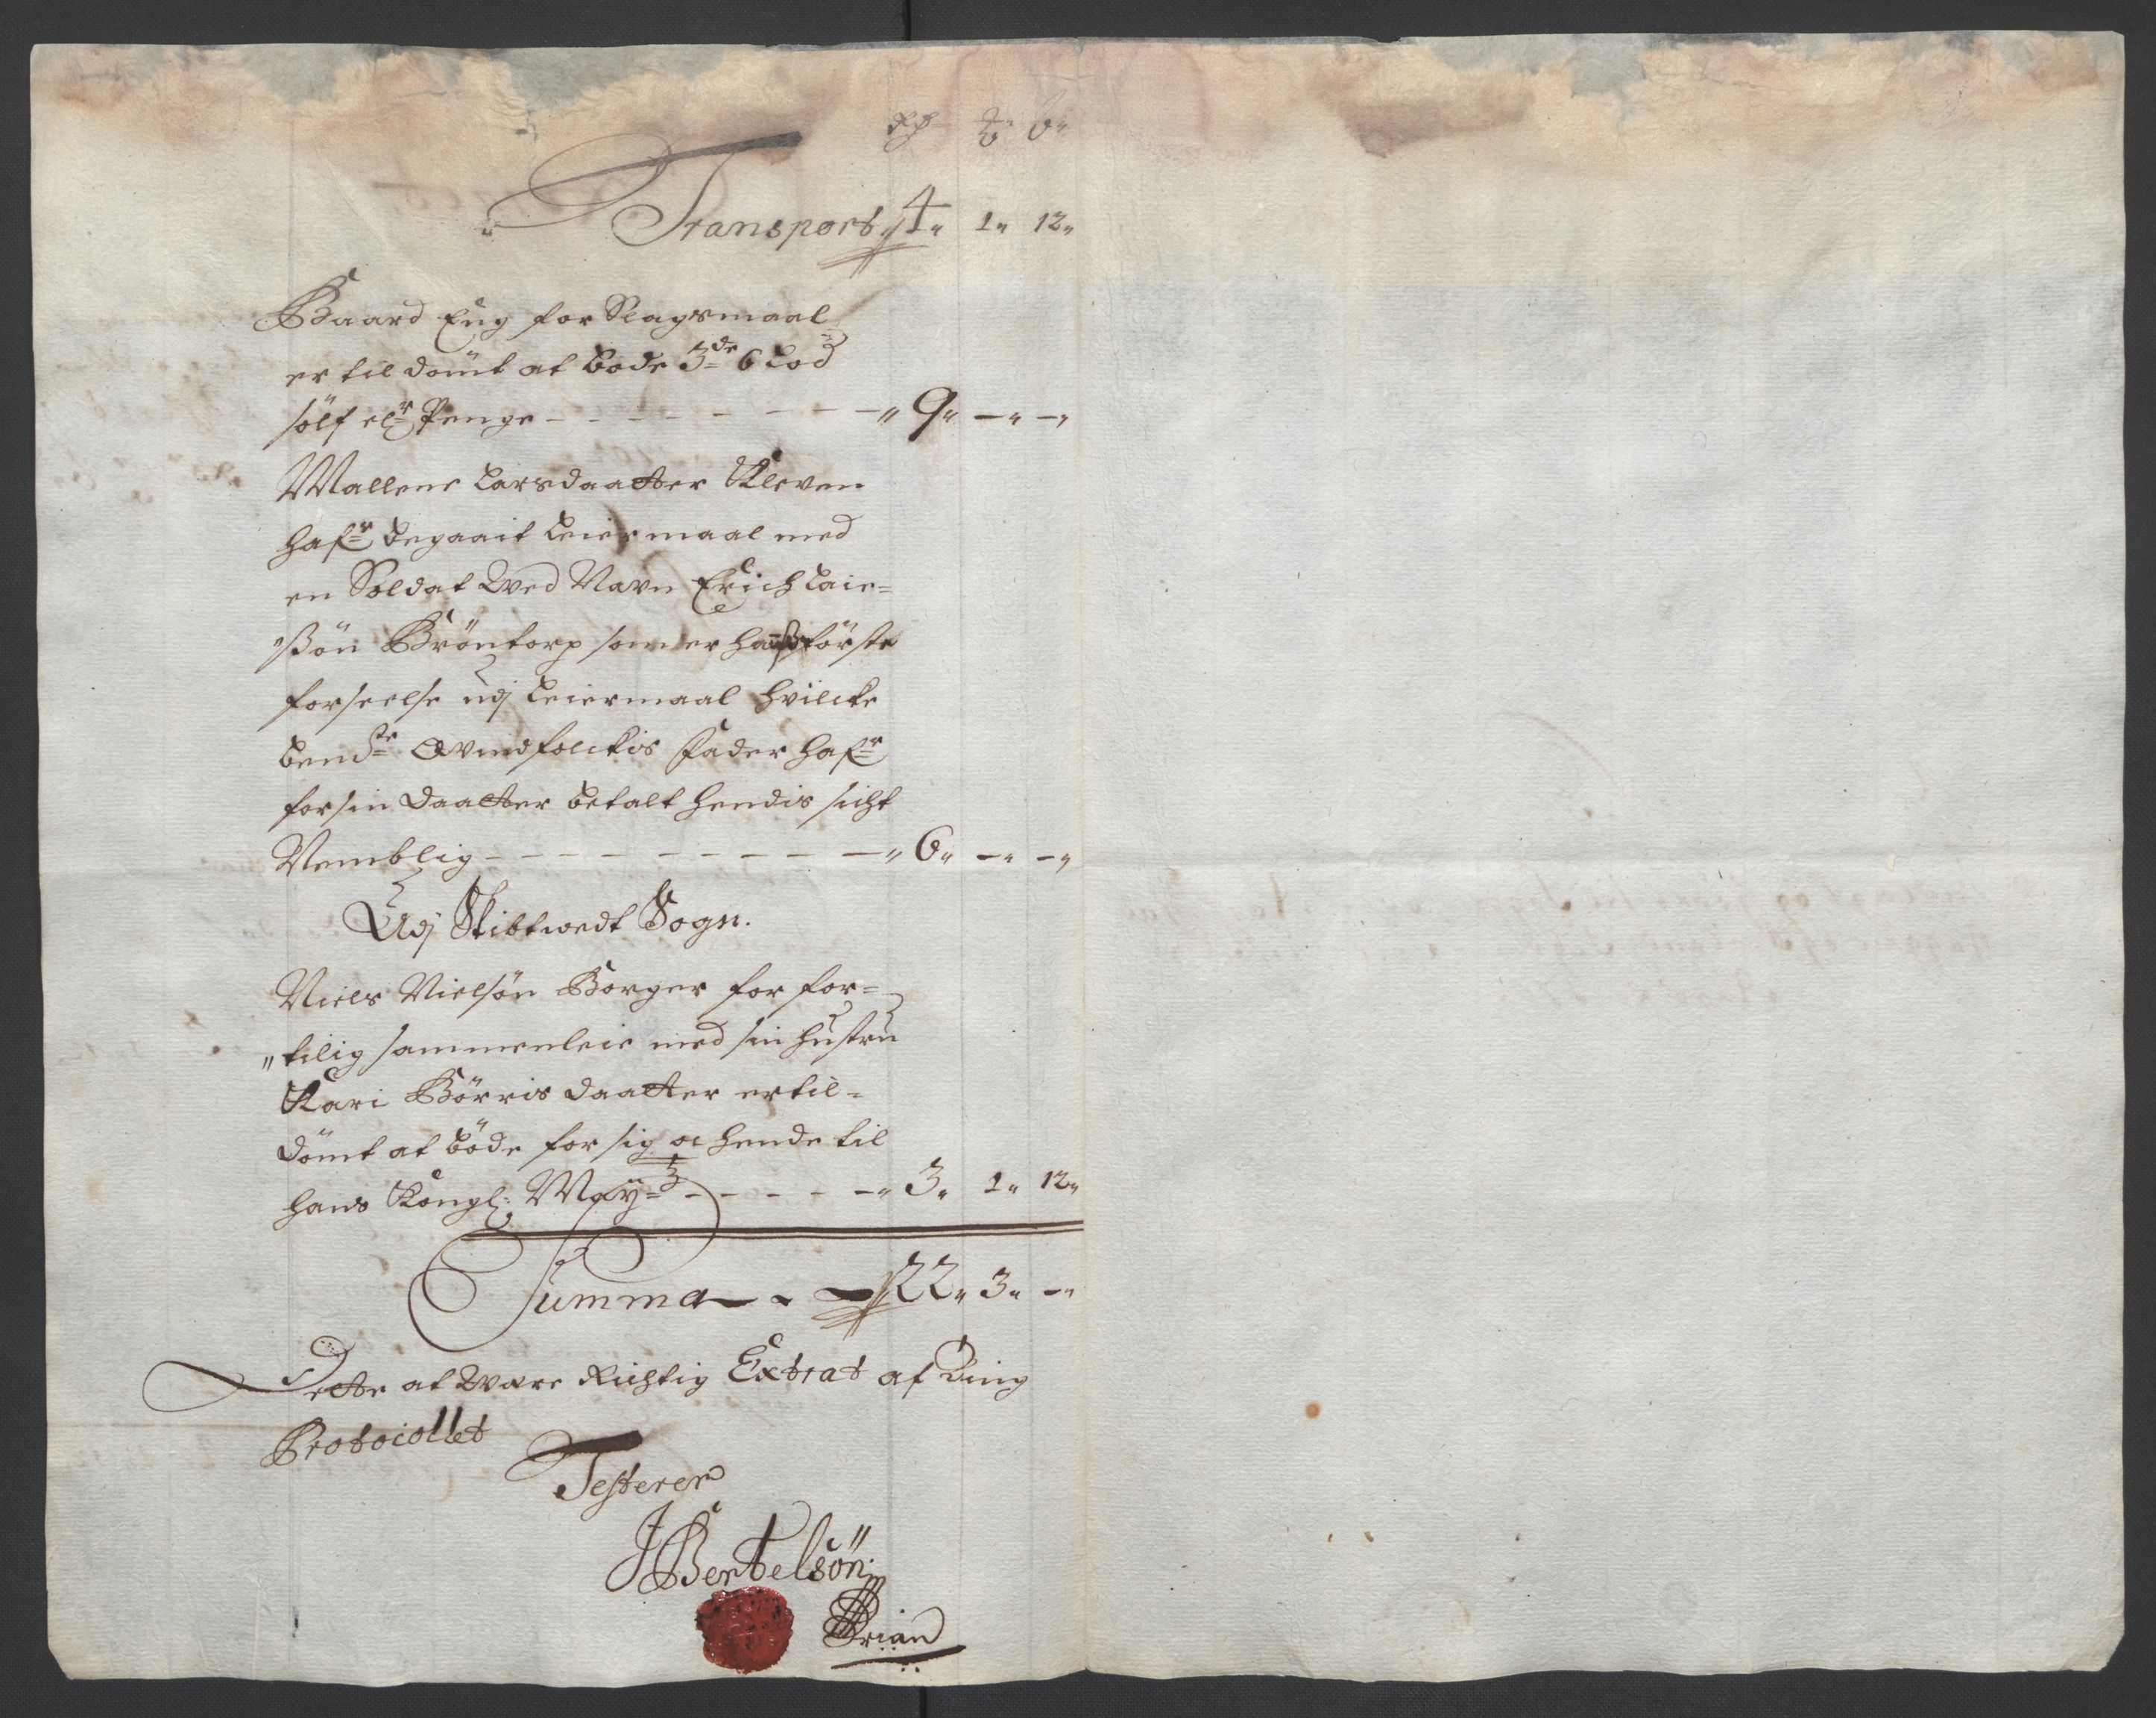 Rdr ₻ ß
Transport 4" 1" 12"
Baard Eng for Slagsmaal
er til dömt at bode 3de 6 Lod
sölf elr Penge - - - - - - - - " 9" -" -"
Mallene Larsdaatter Kleven
hafr begaait Leiermaal med
en Soldat Wed Navn Erich Laie=
"sßön Bröntorp som er hanß förste
forseelse udj Leiermaal hvilcke
bendte Qvindfolckis Fader hafr
for sin Daatter betalt hendis sicht
Nemblig - - - - - - - - - " 6" -" -"
Udj Skibtwedt Sogn.
Niels Nielsön Borger for for=
"tilig sammenleie med sin hustru
Kari Börris daatter er til=
dömt at böde for sig oc hende til
hans Kongl: Mayt - - - - - " 3" 1" 12"
Summa - - 22" 3" -"
Dette at Være Richtig Extrat af Ting
Protocollet
Testerer
J Bertelsön